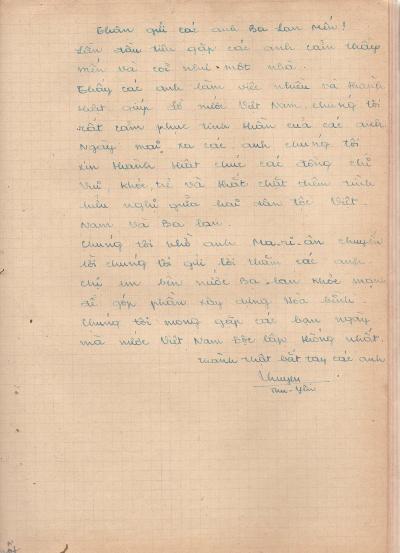 Thân gửi các anh Ba Lan mến!
Lần đầu tiên gặp các anh cảm thấy
mến và coi như một nhà.
Thấy các anh làm việc nhiều và thành
thật giúp đỡ nước Việt Nam, chúng tôi
rất cảm phục tinh thần của các anh
Ngày mai xa các anh chúng tôi
xin thành thật chúc các đồng chí
vui, khỏe, trẻ và thắt chặt thêm tình
hữu nghị giữa hai dân tộc Việt
Nam và Ba Lan.
Chúng tôi nhờ anh Ma-ri-ân chuyển
lời chúng tôi gửi lời thăm các anh
chị em bên nước Ba-Lan khỏe mạnh
để góp phần xây dựng Hòa bình
Chúng tôi mong gặp các bạn ngày
mà nước Việt Nam Độc lập thống nhất.
thành thật bắt tay các anh